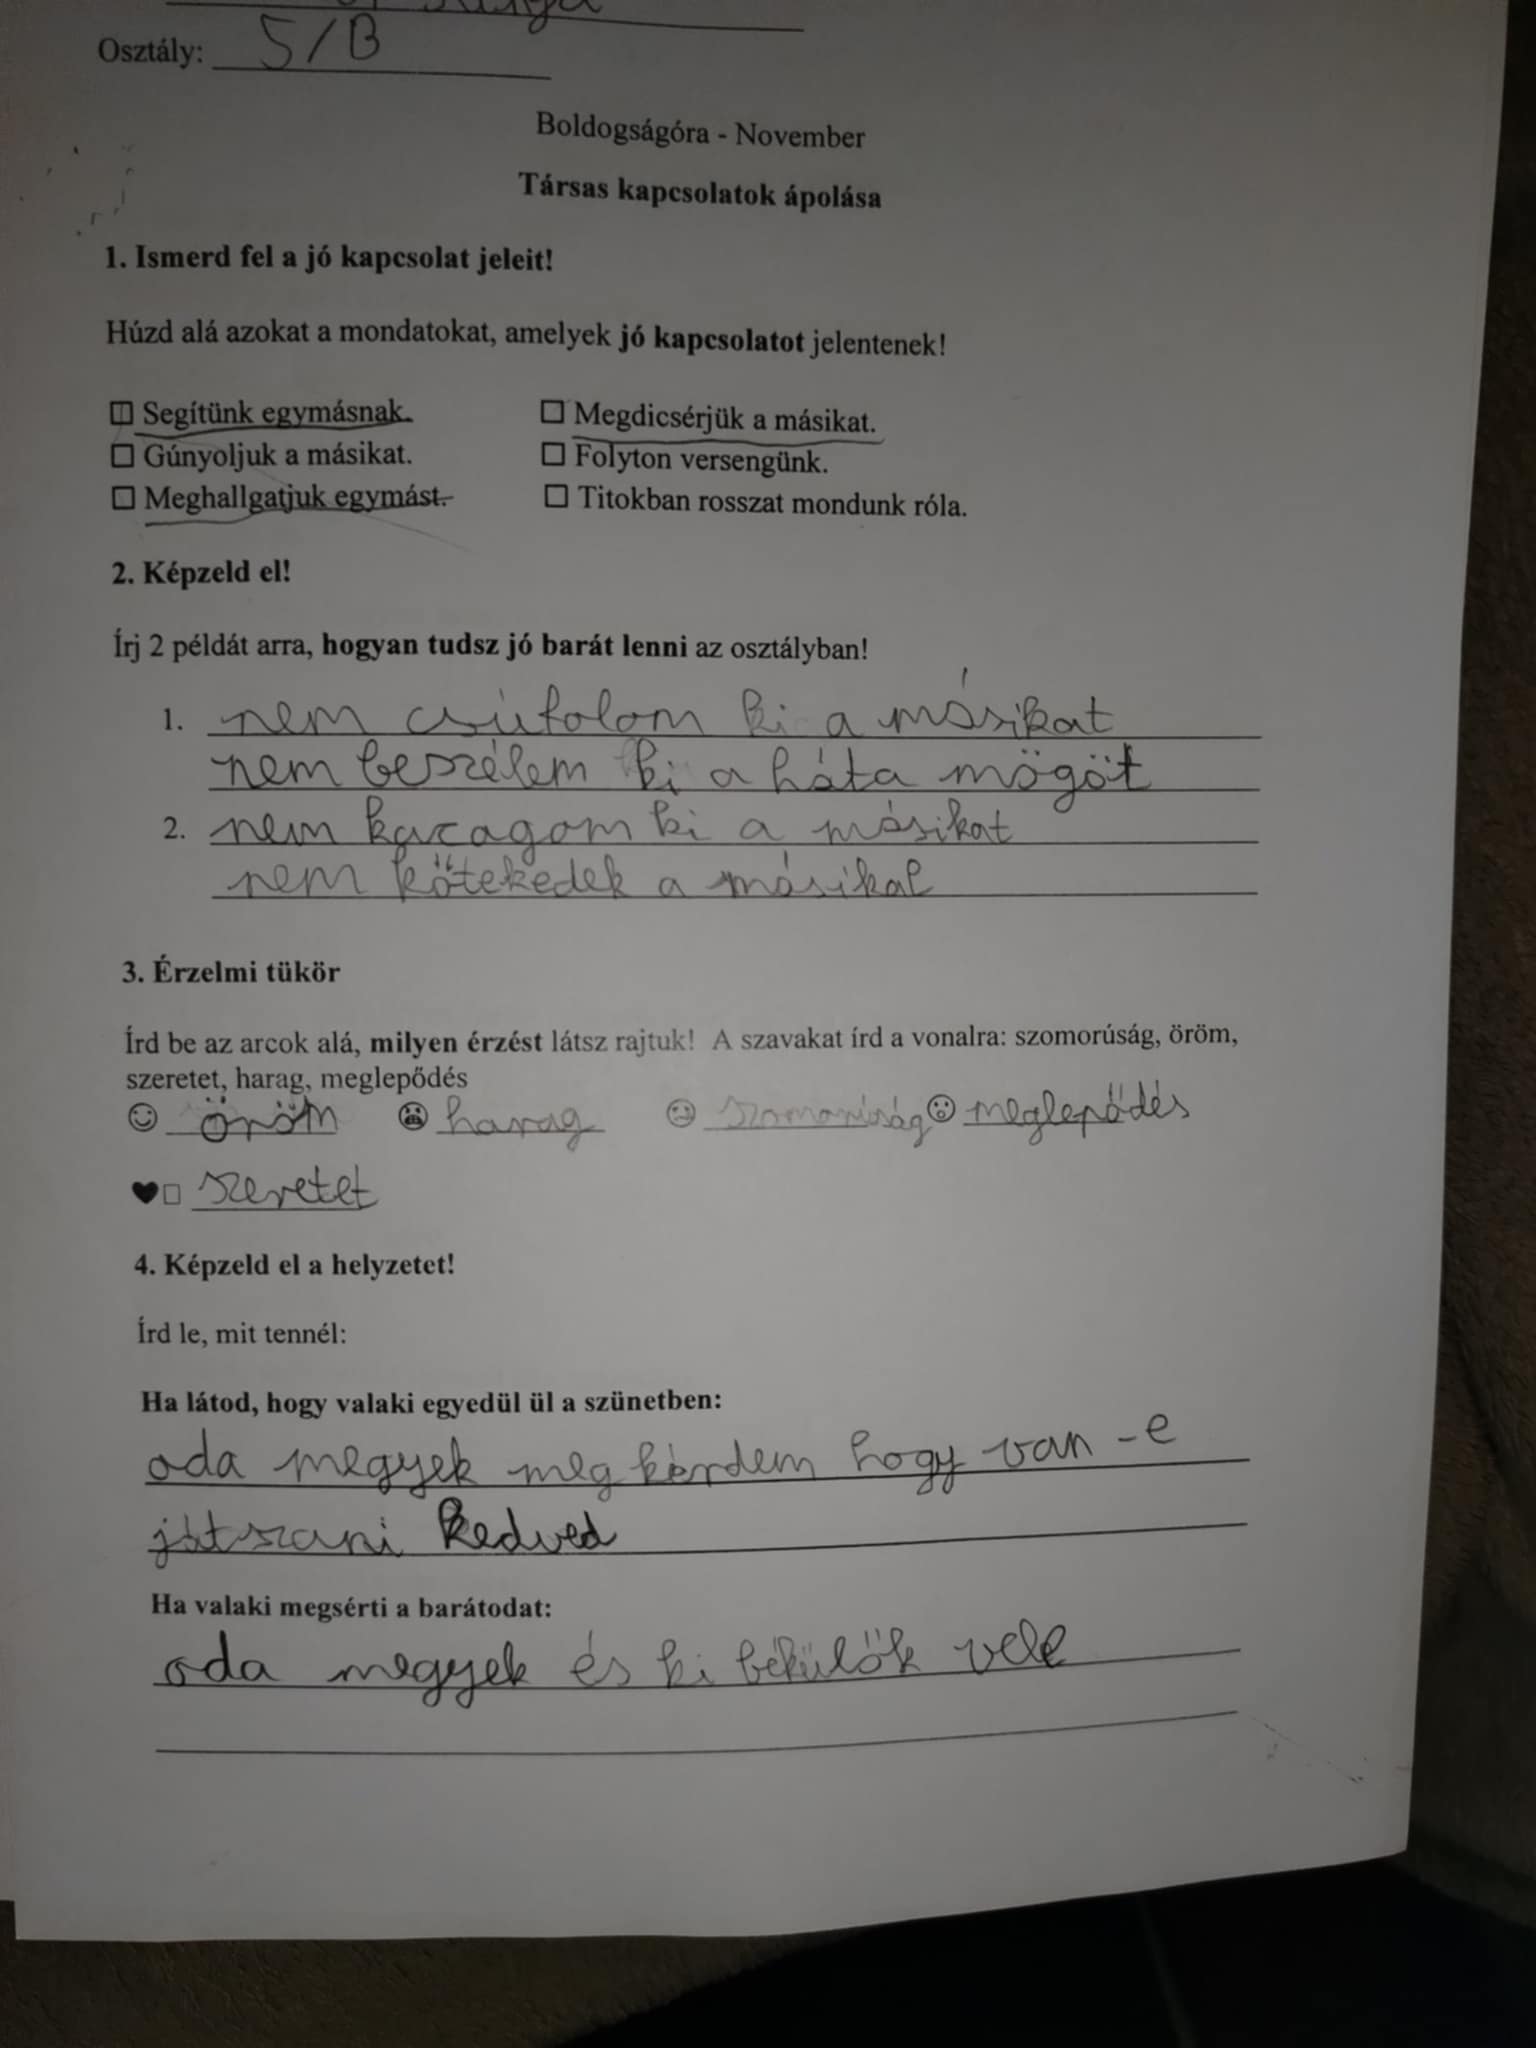 Osztály: 5/B
Boldogságóra - November
Társas kapcsolatok ápolása
1. Ismerd fel a jó kapcsolat jeleit!
Húzd alá azokat a mondatokat, amelyek jó kapcsolatot jelentenek!
☐ Segítünk egymásnak. ☐ Megdicsérjük a másikat.
☐ Gúnyoljuk a másikat. ☐ Folyton versengünk.
☐ Meghallgatjuk egymást. ☐ Titokban rosszat mondunk róla.
2. Képzeld el!
Írj 2 példát arra, hogyan tudsz jó barát lenni az osztályban!
1. nem csúfolom ki a másikat
nem beszélem ki a háta mögöt
2. nem kacagom ki a másikat
nem kötekedek a másikal
3. Érzelmi tükör
Írd be az arcok alá, milyen érzést látsz rajtuk! A szavakat írd a vonalra: szomorúság, öröm,
szeretet, harag, meglepődés
öröm harag szomorúság meglepődés
szeretet
4. Képzeld el a helyzetet!
Írd le, mit tennél:
Ha látod, hogy valaki egyedül ül a szünetben:
oda megyek meg kérdem hogy van -e
játszani kedved
Ha valaki megsérti a barátodat:
oda megyek és ki békülők vele